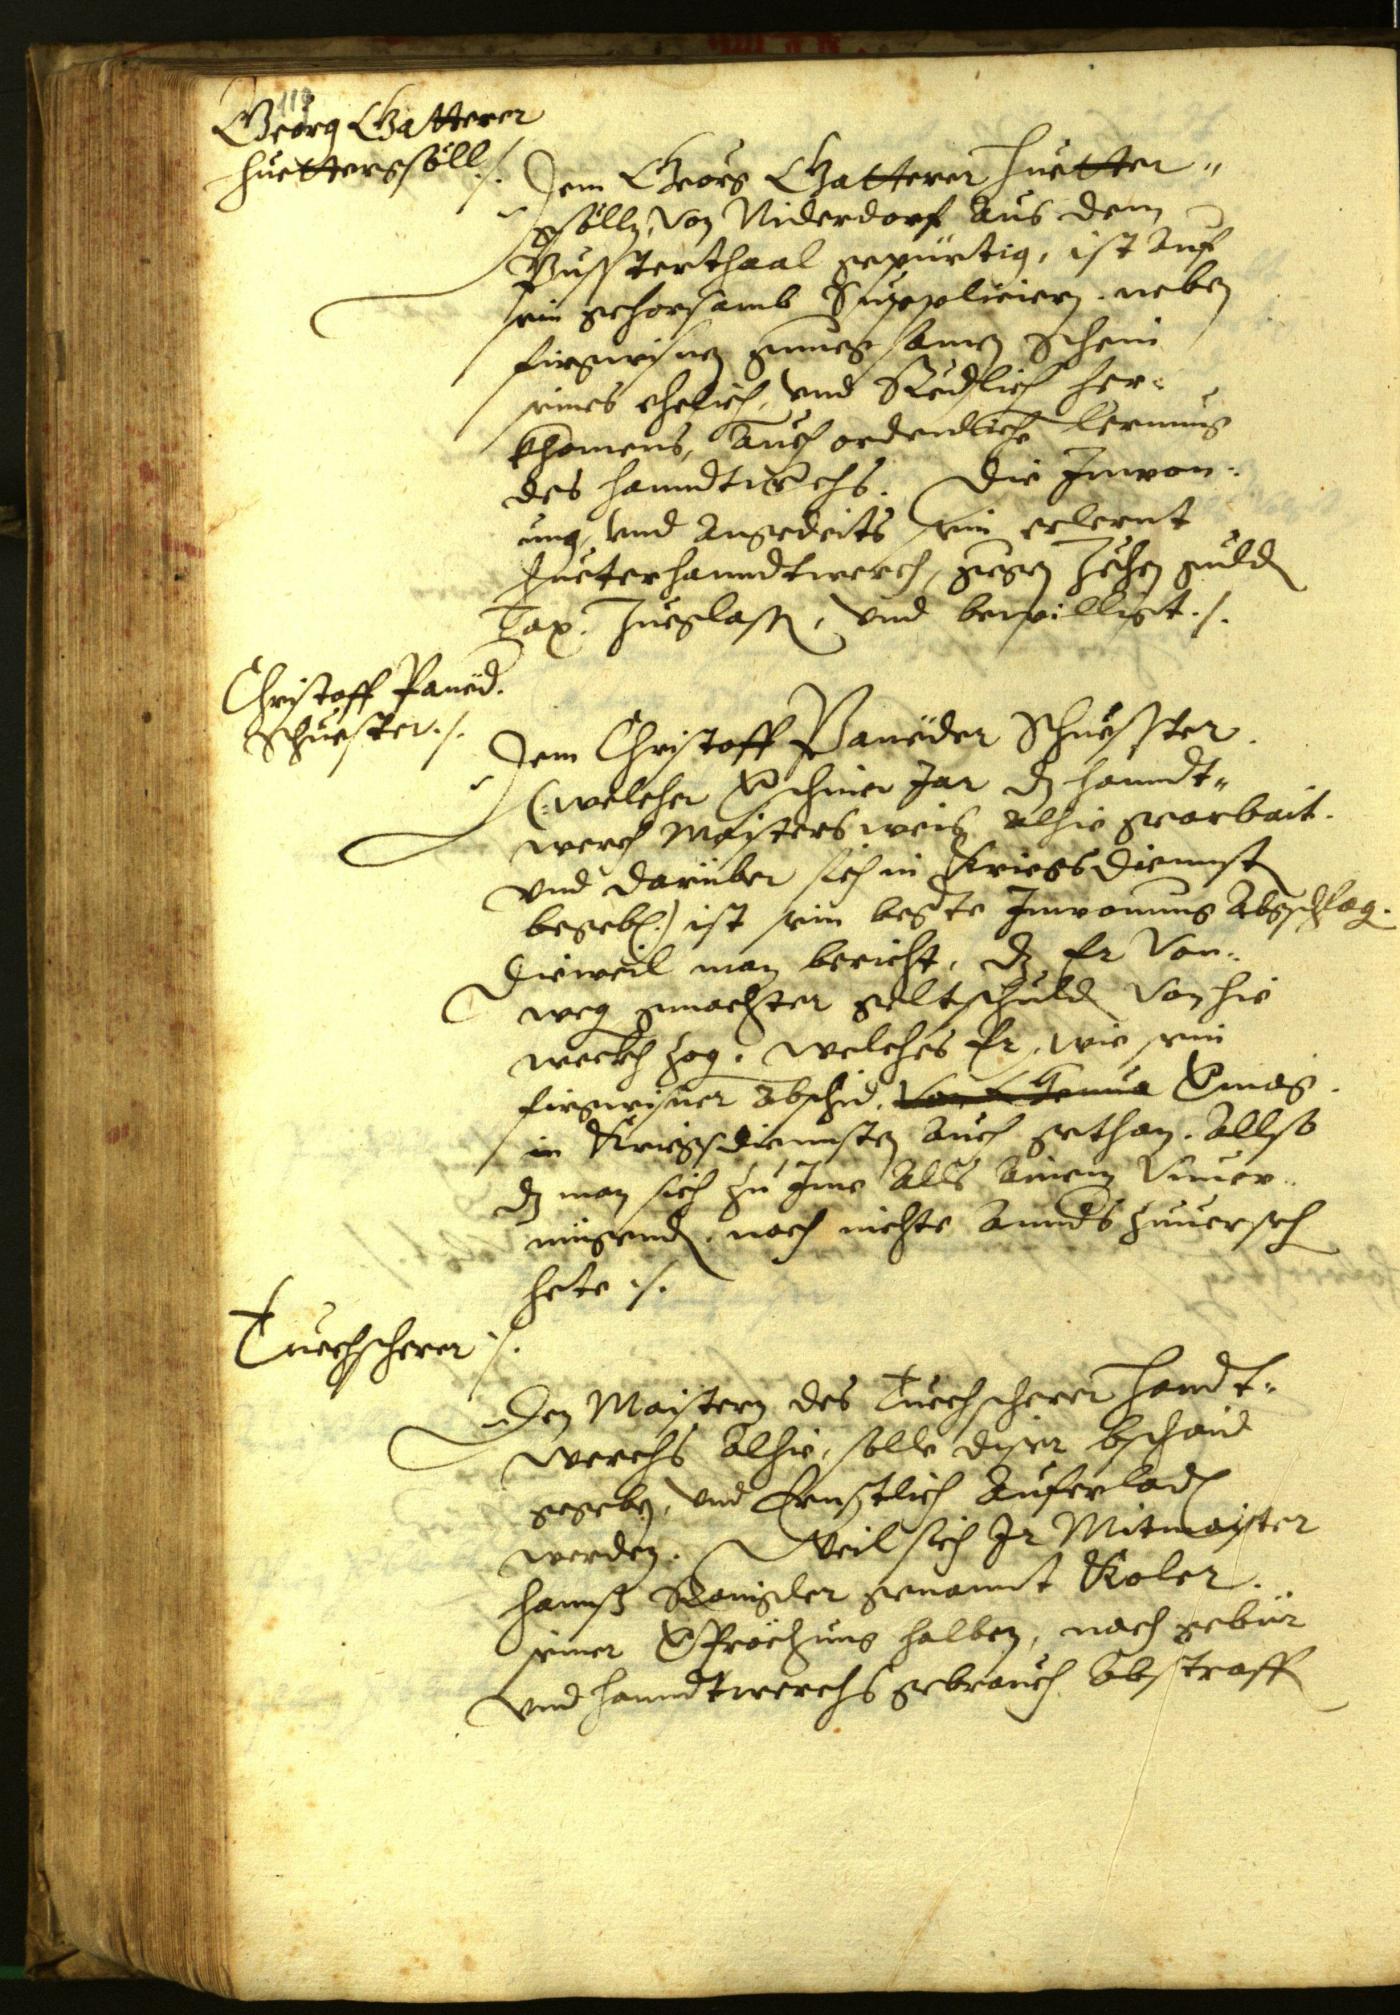 118
Georg Gatterer
huettergsöll ./.
Dem Georg Gatterer huetter¬
gsölln, von Niderdorf aus dem
Pussterthaal gepürtig, ist auf
sein gehorsamb Suppliciern, neben
firgwisnen gnuegsamen Schein
seines ehelich, vnd Redlich her¬
khomens, auch ordenliche lernung
des hanndtwerchs. Die Inwon¬
ung, vnd angedeits sein erlernt
Hueterhanndtwerch, gegen Zehen guld
Tax, Zuegelassn, vnd bewilligt ./.
Christoff Paneid.
Schuester ./.
Dem Christoff Paneider Schuesster
(: welcher verschiner Jar dz hanndt¬
werch Maisters weis alhie gearbait
vnd darüber sich in Kriegsdiennst
begeben :) ist sein begerte Inwonung abgschlag.
Dieweil man bericht, dz Er von¬
weg gmachter geltschuld von hie
weckh zog, welches Er, wie sein
firgwisner abschid, von Genua vermag
in Kriegsdiennsten auch gethan, allso
dz man sich zu Ime alls ainem vnuer¬
mügend, noch nichts annders zuuersech
hete ./.
Tuechscherer ./.
Den Maistern des Tuechscherer handt¬
werchs alhie, solle diser bschaid
gegeben, vnd Ernstlich auferlad
werden. Weil sich Ir Mitmaister
hannß genannt Koler
seiner halben, nach gebür
vnd hanndtwerchs gebrauch abstraff